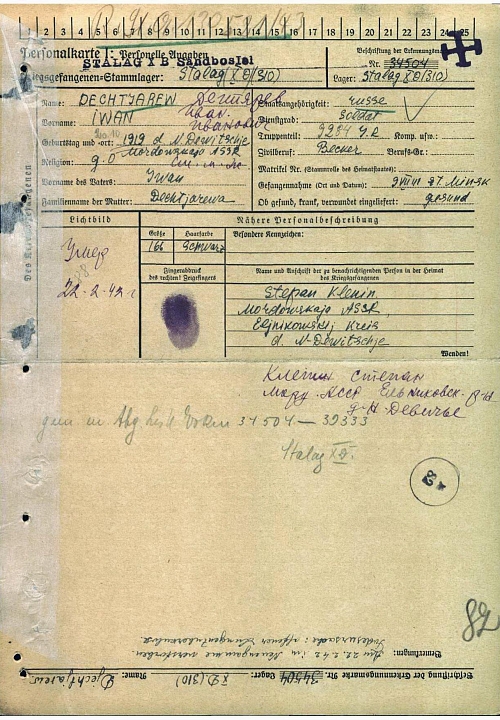 1 2 3 4 5 6 7 8 9 10 11 12 13 14 15 16 17 18 19 20 21 22 23 24 25
Personalkarte I: Personelle Angaben
STALAG X B Sandbostel
Kriegsgefangenen-Stammlager: Stalag (XD/310)
Beschriftung der Erkennungsmarke
Nr. 34504
Lager: Stalag (XD/310)
Name: DECHTJAREW Дехтярев
Vorname: IWAN Иван Иванович
Geburtstag und -ort: 1919 d. N. Dewitschje
Mordowskaja ASSR
Religion: g.o
Vorname des Vaters: Iwan
Familienname der Mutter: Dechtjarewa
Staatsangehörigkeit: russe
Dienstgrad: Soldat
Truppenteil: Komp. usw.:
Zivilberuf: Becker Berufs-Gr.:
Matrikel Nr. (Stammrolle des Heimatstaates):
Gefangennahme (Ort und Datum): Minsk
Ob gefund, krank, verwundet eingeliefert: gesund
Des Kriegsgefangenen
Lichtbild
Умер
22-2-42 г
Nähere Personalbeschreibung
Größe Haarfarbe
166 Schwarz
Besondere Kennzeichen:
Fingerabdruck
des rechten! Zeigefingers
Name und Anschrift der zu benachrichtigenden Person in der Heimat
des Kriegsgefangenen
Stepan Klenin
Mordowskaja ASSR,
Eljnikowskij Kreis
d. N-Dewitschje
Wenden!
Кленин Степан
Морд. АССР Ельниковск. р-н
д-Н Девичье
34504 — 39333
Stalag XD.
82
82
Bemerkungen: Am 22.2.42 in Neuengamme verstorben
Todesursache: offener Lungentuberkulose
Beschriftung der Erkennungsmarke Nr. 34504 Lager: XD.(310) Name: Djechtjarew